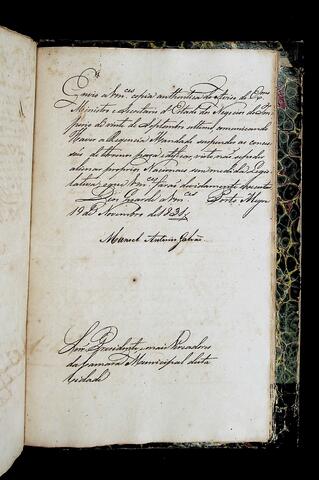 Envio a Vm.ces copia authentica do Aviso do Ex.mo
Ministro e Secretario d'Estado dos Negocios do Im-
perio de vinte de Septembro ultimo communicando
Haver a Regencia Mandado suspender as conces-
sões de terrenos para edificar, visto não se poder
alienar proprios Nacionaes sem medida Legis-
lativa, o que Vm.ces farão devidamente executar
Deos Guarde a Vm.ces Porto Alegre
19 de Novembro de 1831
Manoel Antonio Galvão
Snr.s Presidente, e mais Vereadores
da Camara Municipal desta
Cidade